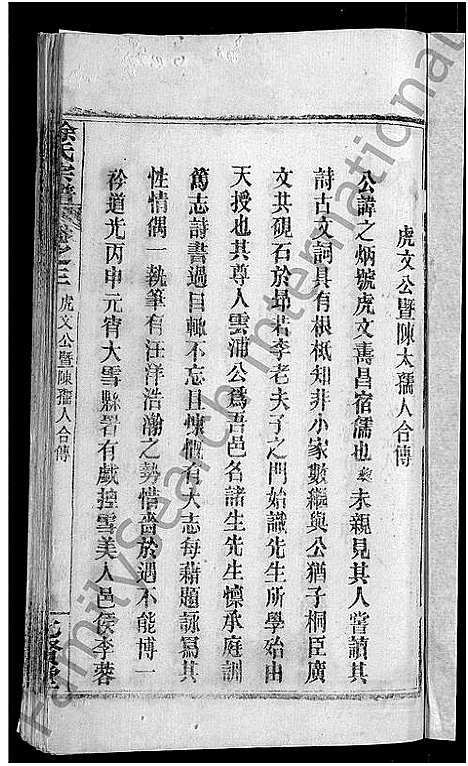 虎文公暨陳太孺人合傳
公諱之炳號虎文壽昌宿儒也 未親見其人嘗讀其
詩古文詞具有根柢知非小家數繼與公猶子桐臣廣
文共硯石於昴若李老夫子之門始識先生所學始由
天授也其尊人雲浦公爲吾邑名諸生先生懍承庭訓
篤志詩書過目輒不忘且慷慨有大志每藉題詠寫其
性情偶一執筆有汪洋浩瀚之勢惜嗇於遇不能博一
衿道光丙申元宵大雪縣署有戲摶雪美人邑侯李蓉
徐氏宗譜 卷之三 虎文公暨陳孺人合傳
Familysearch International